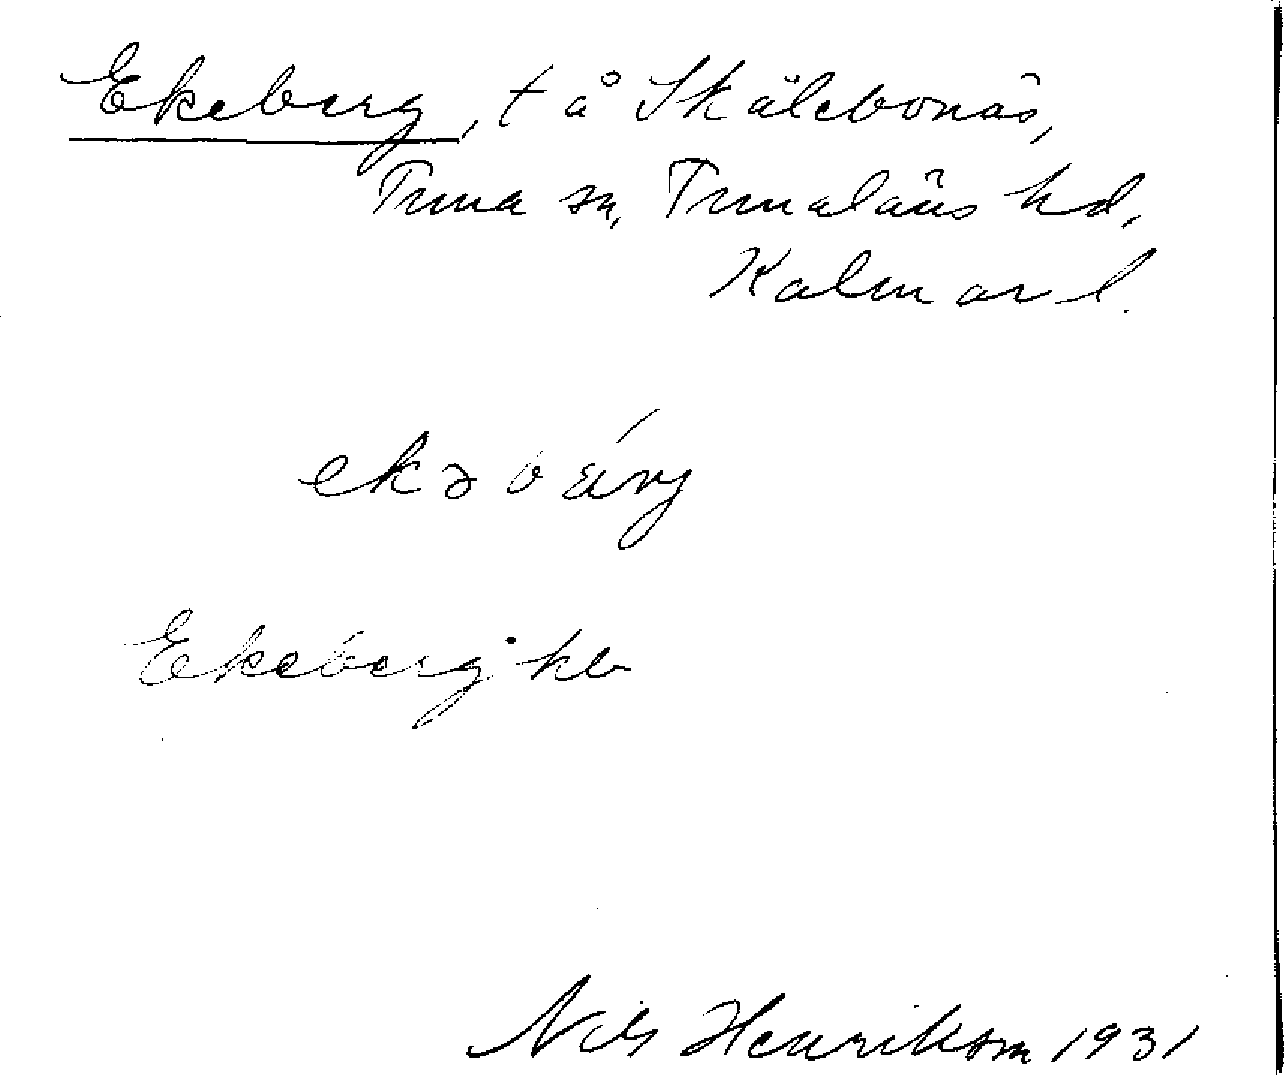 Ekeberg, t å Skälebonäs,
Tuna sn, Tunaläns hd,
Kalmar l.
ekəbærj
Ekeberg kb
Nils Henrikson 1931